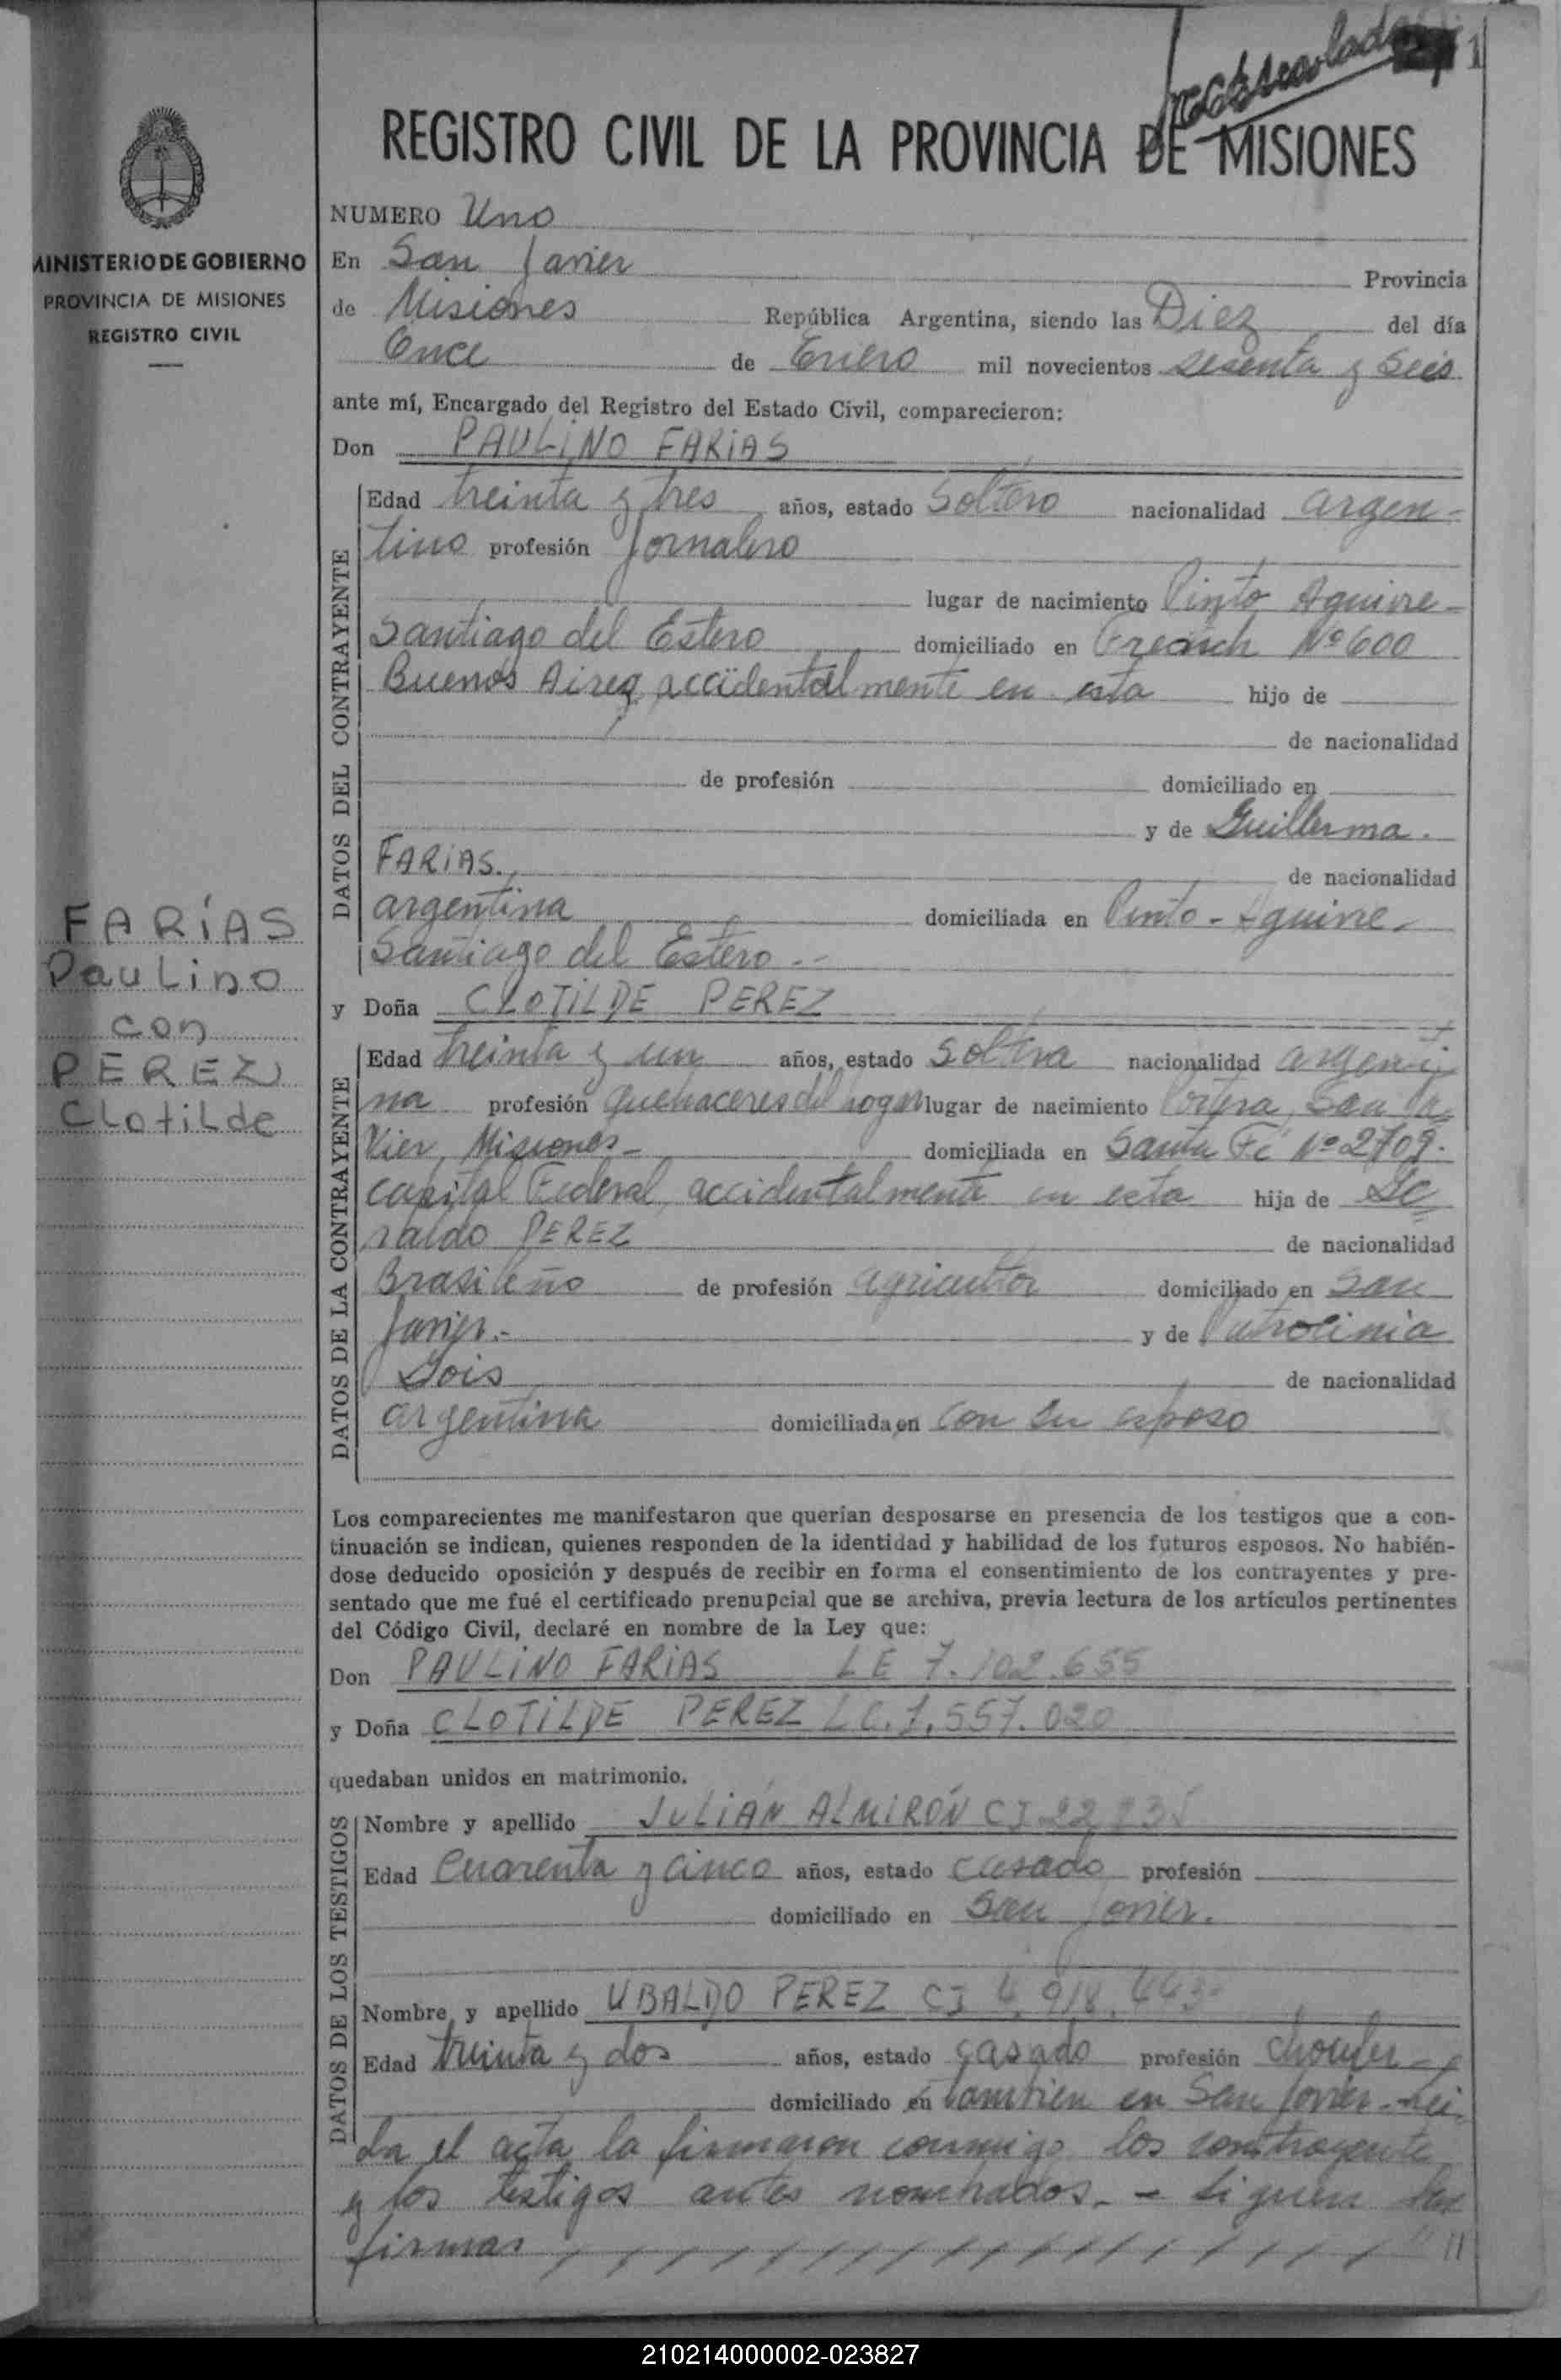 1
REGISTRO CIVIL DE LA PROVINCIA DE MISIONES
MINISTERIO DE GOBIERNO
PROVINCIA DE MISIONES
REGISTRO CIVIL
FARÍAS
Paulino
con
PEREZ
Clotilde
NUMERO Uno
En San Javier Provincia
de Misiones República Argentina, siendo las Diez del día
Once de Enero mil novecientos sesenta y seis
ante mí, Encargado del Registro del Estado Civil, comparecieron:
Don PAULINO FARIAS
DATOS DEL CONTRAYENTE
Edad treinta y tres años, estado Soltero nacionalidad argen-
tino profesión Jornalero
lugar de nacimiento Pinto Aguirre-
Santiago del Estero domiciliado en Nº 600
Buenos Aires, accidentalmente en esta hijo de
de nacionalidad
de profesión domiciliado en
y de Guillerma.
FARIAS. de nacionalidad
argentina domiciliada en Pinto-Aguirre-
Santiago del Estero --
y Doña CLOTILDE PEREZ
DATOS DE LA CONTRAYENTE
Edad treinta y un años, estado Soltera nacionalidad argenti
na profesión quehaceres del hogar lugar de nacimiento San Ja=
vier, Misiones- domiciliada en Santa Fé Nº 2709.
capital Federal, accidentalmente en esta hija de Ge
raldo PEREZ de nacionalidad
Brasileño de profesión agricultor domiciliado en San
Javier.- y de Patrocinia
Gois de nacionalidad
argentina domiciliada en con su esposo
Los comparecientes me manifestaron que querían desposarse en presencia de los testigos que a con-
tinuación se indican, quienes responden de la identidad y habilidad de los futuros esposos. No habién-
dose deducido oposición y después de recibir en forma el consentimiento de los contrayentes y pre-
sentado que me fué el certificado prenupcial que se archiva, previa lectura de los artículos pertinentes
del Código Civil, declaré en nombre de la Ley que:
Don PAULINO FARIAS LE 7.102.655
y Doña CLOTILDE PEREZ LC. 1.557.020
quedaban unidos en matrimonio.
DATOS DE LOS TESTIGOS
Nombre y apellido JULIÁN ALMIRÓN CI
Edad Cuarenta y cinco años, estado casado profesión
domiciliado en San Javier.
Nombre y apellido UBALDO PEREZ CI 4.918.443-
Edad treinta y dos años, estado casado profesión choufer-
domiciliado en tambien en San Javier-Lei
da el acta la firmaron conmigo los contrayente
y los testigos antes nombrados.- - Siguen las
firmas / / / / / / / / / / / / / / / / "
210214000002-023827